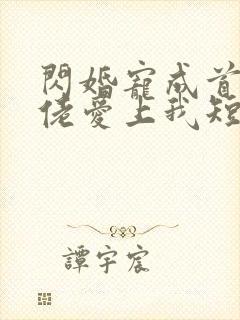 閃婚寵成首
佬愛上我短
譚宇宸